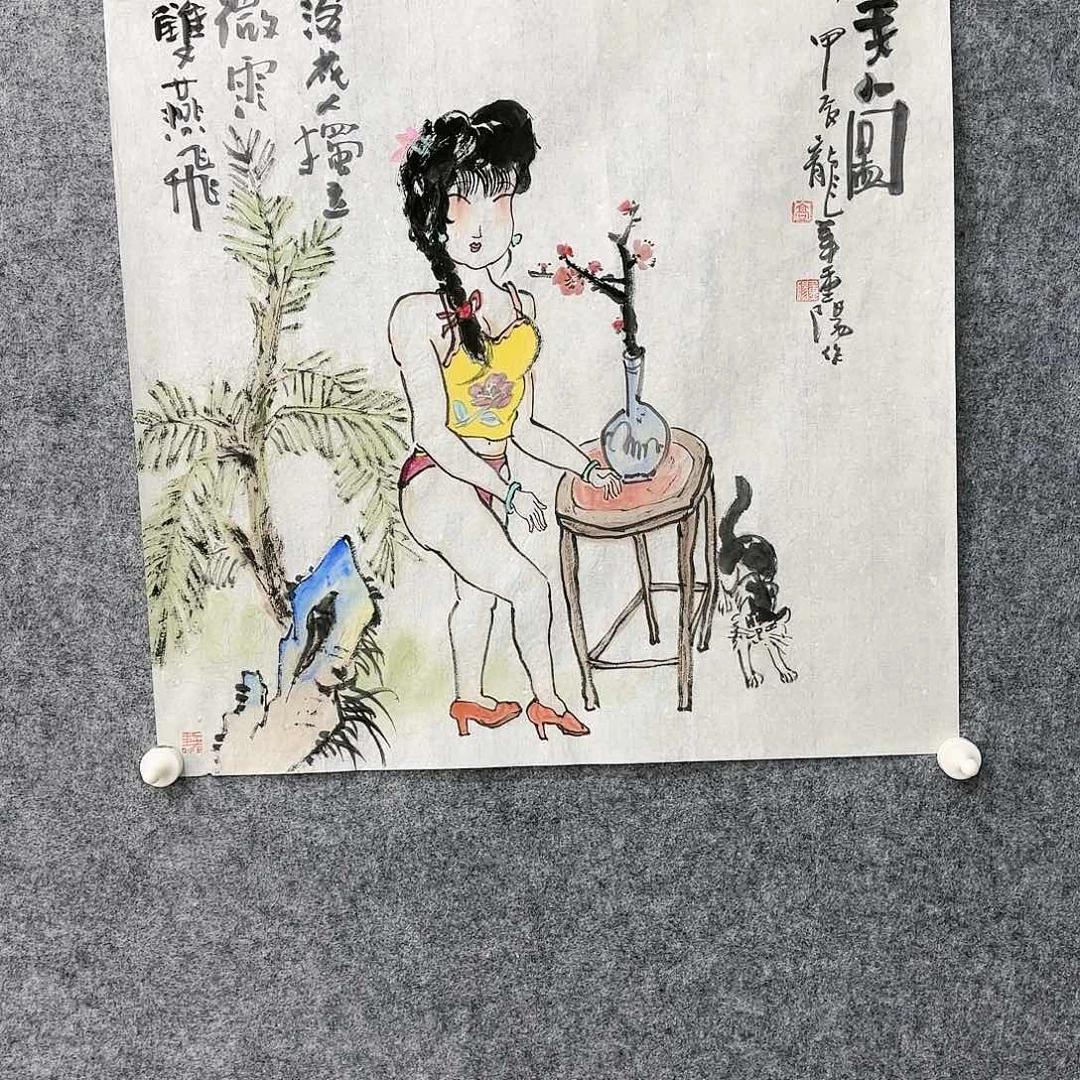 美人圖
甲辰龍年雲陽作
落花人獨立
微雨
雙燕飛